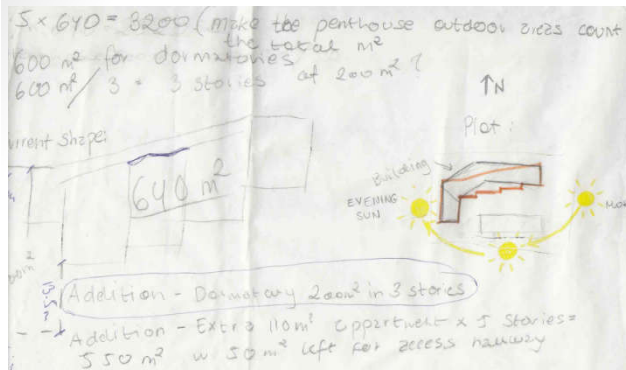 5 x 640 = 3200 (make the penthouse outdoor areas count
the total m²
600 m² for dormatories
600 m² / 3 = 3 stories of 200 m² ?
N
Plot:
urrent Shape:
Building
640 m²
EVENING
SUN
Addition - Dormatory 200m² in 3 stories
Addition - Extra 110 m² appartment x 5 stories =
550 m² w 50 m² left for access hallway